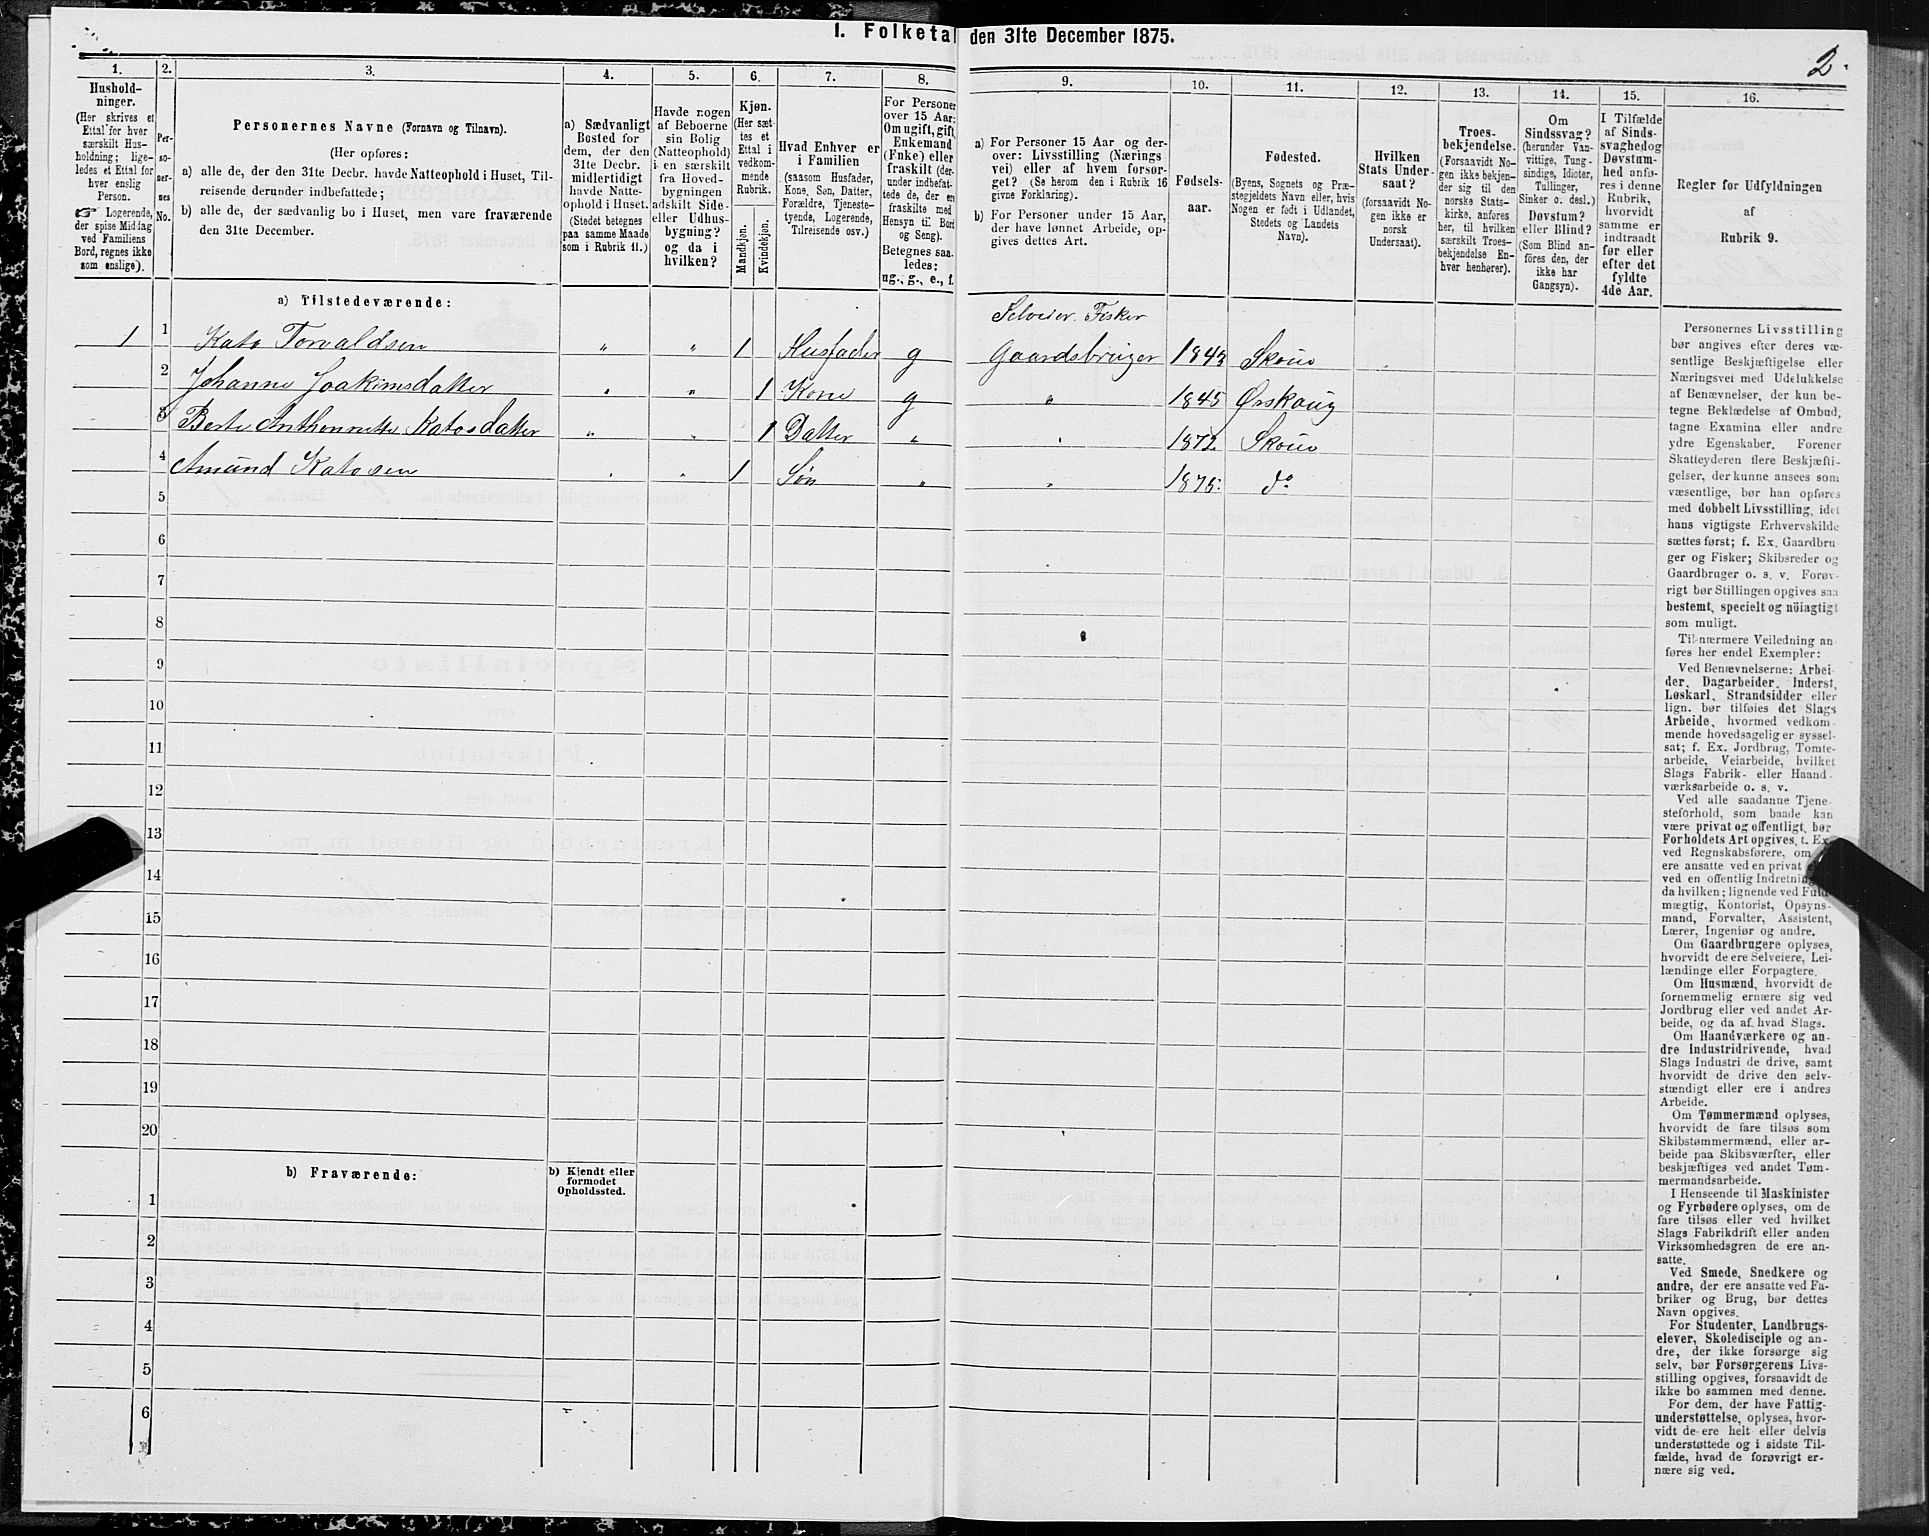 1. Folketal den 31te December 1875.
2.
1.
Hushold-
ninger.
(Her skrives et
Ettal for hver
særskilt Hus-
holdning; lige-
ledes et Ettal for
hver enslig
Person.
☞ Logerende,
der spise Middag
ved Familiens
Bord, regnes ikke
som enslige).
2.
Per-
so-
ner-
nes
No.
3.
Personernes Navne (Fornavn og Tilnavn).
(Her opføres:
a) alle de, der den 31te Decbr. havde Natteophold i Huset, Til-
reisende derunder indbefattede;
b) alle de, der sædvanlig bo i Huset, men vare fraværende
den 31te December.
4.
a) Sædvanligt
Bosted for
dem, der den
31te Decbr.
midlertidigt
havde Natte-
ophold i Huset.
(Stedet betegnes
paa samme Maade
som i Rubrik 11.)
5.
Havde nogen
af Beboerne
sin Bolig
(Natteophold)
i en særskilt
fra Hoved-
bygningen
adskilt Side-
eller Udhus-
bygning?
og da i
hvilken?
6.
Kjøn.
(Her sæt-
tes et
Ettal i
vedkom-
mende
Rubrik.
Mandkjøn.
Kvindekjøn.
7.
Hvad Enhver er
i Familien
(saasom Husfader,
Kone, Søn, Datter,
Forældre, Tjeneste-
tyende, Logerende,
Tilreisende osv.)
8.
For Personer
over 15 Aar:
Om ugift, gift,
Enkemand
(Enke) eller
fraskilt (der-
under indbefat-
tede de, der ere
fraskilte med
Hensyn til Bord
og Seng).
Betegnes saa-
ledes:
ug., g., e., f.
9.
a) For Personer 15 Aar og der-
over: Livsstilling (Nærings
vei) eller af hvem forsør-
get? (Se herom den i Rubrik 16
givne Forklaring).
b) For Personer under 15 Aar,
der have lønnet Arbeide, op-
gives dettes Art.
10.
Fødsels-
aar.
11.
Fødested.
(Byens, Sognets og Præ-
stegjeldets Navn eller, hvis
Nogen er født i Udlandet,
Stedets og Landets
Navn).
12.
Hvilken
Stats Under-
saat?
(forsaavidt No-
gen ikke er
norsk
Undersaat).
13.
Troes-
bekjendelse.
(Forsaavidt No-
gen ikke bekjen-
der sig til den
norske Stats-
kirke, anføres
her, til hvilken
særskilt Troes-
bekjendelse En-
hver henhører).
14.
Om
Sindssvag?
(herunder Van-
vittige, Tung-
sindige, Idioter,
Tullinger,
Sinker o. desl.)
Døvstum?
eller Blind?
(Som Blind an-
føres den, der
ikke har
Gangsyn).
15.
I Tilfælde
af Sinds-
svaghedog
Døvstum-
hed anfø-
res i denne
Rubrik,
hvorvidt
samme er
indtraadt
før eller
efter det
fyldte
4de Aar.
16.
Regler for Udfyldningen
af
Rubrik 9.
a) Tilstedeværende:
Selveier. Fisker
1 1 Kato Torvaldsen „ „ 1 Husfader g Gaardsbruger 1843 Skoue
2 Johanne Joakimsdatter „ „ 1 Kone g „ 1845 Ørskoug
3 Berte Anthonette Katosdatter „ „ 1 Datter „ „ 1872 Skoue
4 Amund Katosen „ „ 1 Søn „ „ 1875. do
5
6
7
8
9
10
11
12
13
14
15
16
17
18
19
20
b) Fraværende:
b) Kjendt eller
formodet
Opholdssted.
1
2
3
4
5
6
Personernes Livsstilling
bør angives efter deres væ-
sentlige Beskjæftigelse eller
Næringsvei med Udelukkelse
af Benævnelser, der kun be-
tegne Beklædelse af Ombud,
tagne Examina eller andre
ydre Egenskaber. Forener
Skatteyderen flere Beskjæfti-
gelser, der kunne ansees som
væsentlige, bør han opføres
med dobbelt Livsstilling, idet
hans vigtigste Erhvervskilde
sættes først; f. Ex. Gaardbru-
ger og Fisker; Skibsreder og
Gaardbruger o. s. v. Forøv-
rigt bør Stillingen opgives saa
bestemt, specielt og nöiagtigt
som muligt.
Til nærmere Veiledning an-
føres her endel Exempler:
Ved Benævnelserne: Arbei-
der, Dagarbeider, Inderst,
Løskarl, Strandsidder eller
lign. bør tilføies det Slags
Arbeide, hvormed vedkom-
mende hovedsagelig er syssel-
sat; f. Ex. Jordbrug, Tomte-
arbeide, Veiarbeide, hvilket
Slags Fabrik- eller Haand-
værksarbeide o. s. v.
Ved alle saadanne Tjene-
steforhold, som baade kan
være privat og offentligt, bør
Forholdets Art opgives, t. Ex.
ved Regnskabsførere, om de
ere ansatte ved en privat eller
ved en offentlig Indretning og
da hvilken; lignende ved Fuld-
mægtig, Kontorist, Opsyns-
mand, Forvalter, Assistent,
Lærer, Ingeniør og andre.
Om Gaardbrugere oplyses,
hvorvidt de ere Selveiere, Lei-
lændinge eller Forpagtere.
Om Husmænd, hvorvidt de
fornemmelig ernære sig ved
Jordbrug eller ved andet Ar-
beide, og da af hvad Slags.
Om Haandværkere og an-
dre Industridrivende, hvad
Slags Industri de drive, samt
hvorvidt de drive den selv-
stændigt eller ere i andres
Arbeide.
Om Tømmermænd oplyses,
hvorvidt de fare tilsøs som
Skibstømmermænd, eller ar-
beide paa Skibsværfter, eller
beskjæftiges ved andet Tøm-
mermandsarbeide.
I Henseende til Maskinister
og Fyrbødere oplyses, om de
fare tilsøs eller ved hvilket
Slags Fabrikdrift eller anden
Virksomhedsgren de ere an-
satte.
Ved Smede, Snedkere og
andre, der ere ansatte ved Fa-
briker og Brug, bør dettes
Navn opgives.
For Studenter, Landbrugs-
elever, Skoledisciple og an-
dre, der ikke forsørge sig
selv, bør Forsørgerens Livs-
stilling opgives, forsaavidt de
ikke bo sammen med denne.
For dem, der have Fattig-
understøttelse, oplyses, hvor-
vidt de ere helt eller delvis
understøttede og i sidste Til-
fælde, hvad de forøvrigt er-
nære sig ved.